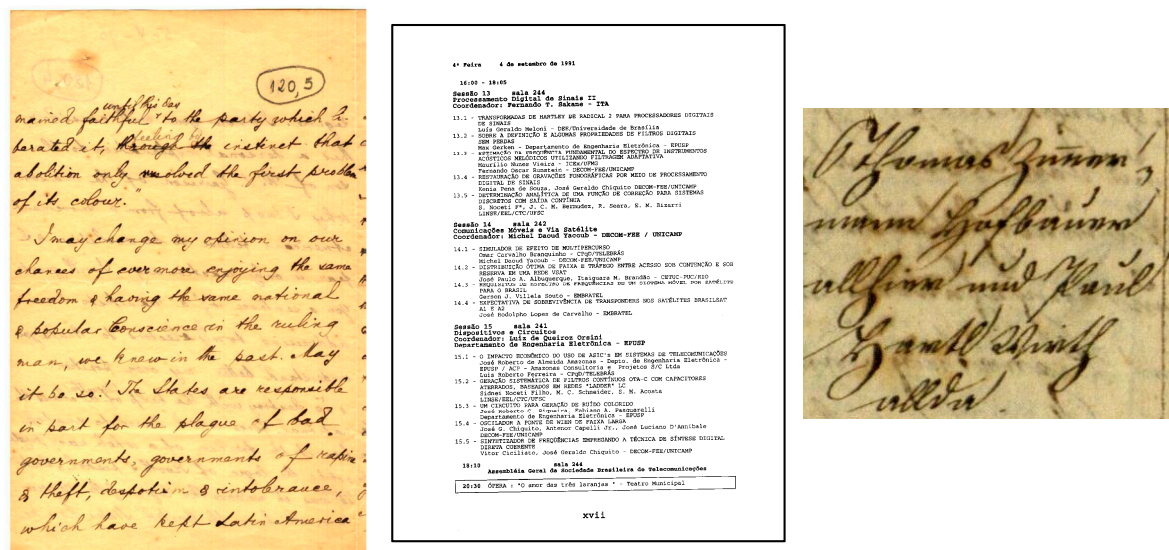 120,5
until his day
mained faithful to the party which li-
berated it, through the instinct that
abolition only resolved the first problem
of its colour."
I may change my opinion on our
chances of evermore enjoying the same
freedom & having the same national
& popular Conscience in the ruling
man, we knew in the past. May
it be so! The States are responsible
in part for the plague of bad
governments, governments of rapine
& theft, despotism & intolerance,
which have kept Latin America
4ª Feira 4 de setembro de 1991
16:00 - 18:05
Sessão 13 sala 244
Processamento Digital de Sinais II
Coordenador: Fernando T. Sakane - ITA
13.1 - TRANSFORMADAS DE HARTLEY DE RADICAL 2 PARA PROCESSADORES DIGITAIS
DE SINAIS
Luís Geraldo Meloni - DEE/Universidade de Brasília
13.2 - SOBRE A DEFINIÇÃO E ALGUMAS PROPRIEDADES DE FILTROS DIGITAIS
SEM PERDAS
Max Gerken - Departamento de Engenharia Eletrônica - EPUSP
13.3 - ESTIMAÇÃO DA FREQUÊNCIA FUNDAMENTAL DO ESPECTRO DE INSTRUMENTOS
ACÚSTICOS MELÓDICOS UTILIZANDO FILTRAGEM ADAPTATIVA
Maurílio Nunes Vieira - ICEx/UFMG
Fernando Oscar Runstein - DECOM-FEE/UNICAMP
13.4 - RESTAURAÇÃO DE GRAVAÇÕES FONOGRÁFICAS POR MEIO DE PROCESSAMENTO
DIGITAL DE SINAIS
Kenia Pena de Souza, José Geraldo Chiquito DECOM-FEE/UNICAMP
13.5 - DETERMINAÇÃO ANALÍTICA DE UMA FUNÇÃO DE CORREÇÃO PARA SISTEMAS
DISCRETOS COM SAÍDA CONTÍNUA
S. Noceti Fº, J. C. M. Bermudez, R. Seara, E. M. Bizarri
LINSE/EEL/CTC/UFSC
Sessão 14 sala 242
Comunicações Móveis e Via Satélite
Coordenador: Michel Daoud Yacoub - DECOM-FEE / UNICAMP
14.1 - SIMULADOR DE EFEITO DE MULTIPERCURSO
Omar Carvalho Branquinho - CPqD/TELEBRÁS
Michel Daoud Yacoub - DECOM-FEE/UNICAMP
14.2 - DISTRIBUIÇÃO ÓTIMA DE FAIXA E TRÁFEGO ENTRE ACESSO SOB CONTENÇÃO E SOB
RESERVA EM UMA REDE VSAT
José Paulo A. Albuquerque, Itaiguara M. Brandão - CETUC-PUC/RIO
14.3 - REQUISITOS DE ESPECTRO DE FREQUÊNCIAS DE UM SISTEMA MÓVEL POR SATÉLITE
PARA O BRASIL
Gerson J. Villela Souto - EMBRATEL
14.4 - EXPECTATIVA DE SOBREVIVÊNCIA DE TRANSPONDERS NOS SATÉLITES BRASILSAT
A1 E A2
José Rodolpho Lopes de Carvalho - EMBRATEL
Sessão 15 sala 241
Dispositivos e Circuitos
Coordenador: Luiz de Queiroz Orsini
Departamento de Engenharia Eletrônica - EPUSP
15.1 - O IMPACTO ECONÔMICO DO USO DE ASIC's EM SISTEMAS DE TELECOMUNICAÇÕES
José Roberto de Almeida Amazonas - Depto. de Engenharia Eletrônica -
EPUSP / ACP - Amazonas Consultoria e Projetos S/C Ltda
Luis Roberto Ferreira - CPqD/TELEBRÁS
15.2 - GERAÇÃO SISTEMÁTICA DE FILTROS CONTÍNUOS OTA-C COM CAPACITORES
ATERRADOS, BASEADOS EM REDES "LADDER" LC
Sidnei Noceti Filho, M. C. Schneider, S. M. Acosta
LINSE/EEL/CTC/UFSC
15.3 - UM CIRCUITO PARA GERAÇÃO DE RUÍDO COLORIDO
José Roberto C. Siqueira, Fabiano A. Pasquarelli
Departamento de Engenharia Eletrônica - EPUSP
15.4 - OSCILADOR A PONTE DE WIEN DE FAIXA LARGA
José G. Chiquito, Antenor Capelli Jr., José Luciano D'Annibale
DECOM-FEE/UNICAMP
15.5 - SINTETIZADOR DE FREQÜÊNCIAS EMPREGANDO A TÉCNICA DE SÍNTESE DIGITAL
DIRETA COERENTE
Vitor Ciciliato, José Geraldo Chiquito - DECOM-FEE/UNICAMP
18:10 sala 244
Assembléia Geral da Sociedade Brasileira de Telecomunicações
20:30 ÓPERA : "O amor das três laranjas " - Teatro Municipal
xvii
Thomas
allhier und Paul
allda